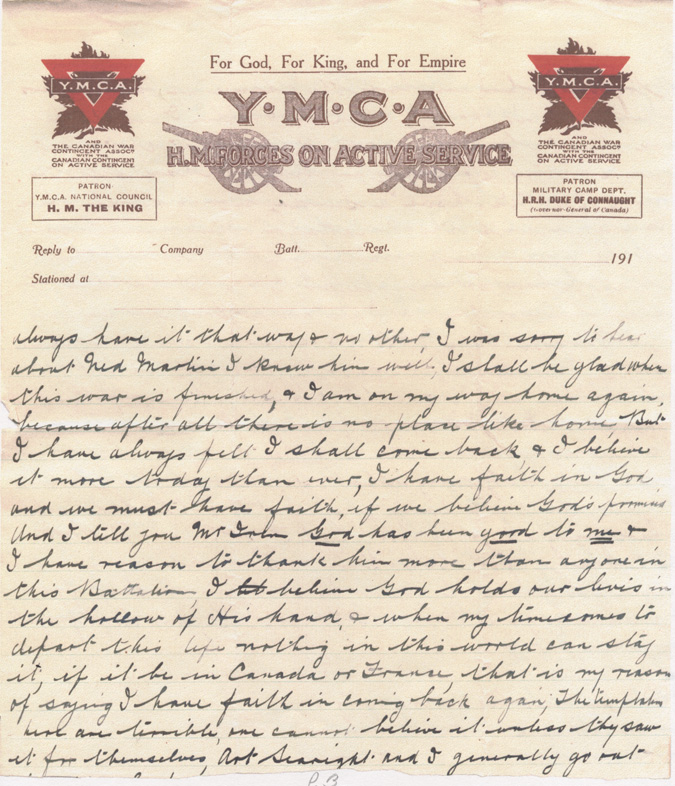 For God, For King, and For Empire
Y·M·C·A
H.M. FORCES ON ACTIVE SERVICE
Y.M.C.A.
AND
THE CANADIAN WAR
CONTINGENT ASSOCN
WITH THE
CANADIAN CONTINGENT
ON ACTIVE SERVICE
PATRON
Y.M.C.A. NATIONAL COUNCIL
H. M. THE KING
Y.M.C.A.
AND
THE CANADIAN WAR
CONTINGENT ASSOCN
WITH THE
CANADIAN CONTINGENT
ON ACTIVE SERVICE
PATRON
MILITARY CAMP DEPT.
H.R.H. DUKE OF CONNAUGHT
(Governor-General of Canada)
Reply to Company Batt. Regt. 191
Stationed at
always have it that way & no other, I was sorry to hear
about Ned Martin I know him well, I shall be glad when
this war is finished, & I am on my way home again,
because after all there is no place like home, But
I have always felt I shall come back & I believe
it more today than ever, I have faith in God
and we must have faith, if we believe God's promises
And I tell you Mr God has been good to me &
I have reason to thank him more than anyone in
this Battalion, I believe God holds our livis in
the hollow of His hand, & when my time comes to
depart this life nothing in this world can stay
it, if it be in Canada or France, that is my reason
of saying I have faith in coming back again, The temptation
here are terrible, one cannot believe it unless thy saw
it for themselves, Art Searight and I generally go out
P. 3